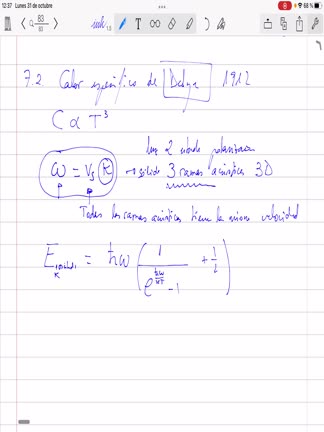 12:37 Lunes 31 de octubre
68 %
83
60
1.5
7.2. Calor específico de Debye 1912
C α T³
luz 2 modos polarización
ω = Vs K → sólido 3 ramas acústicas 3D
Todas las ramas acústicas tienen la misma velocidad
E = ħω ( 1 / (e^(ħω/kT) - 1) + 1/2 )
K